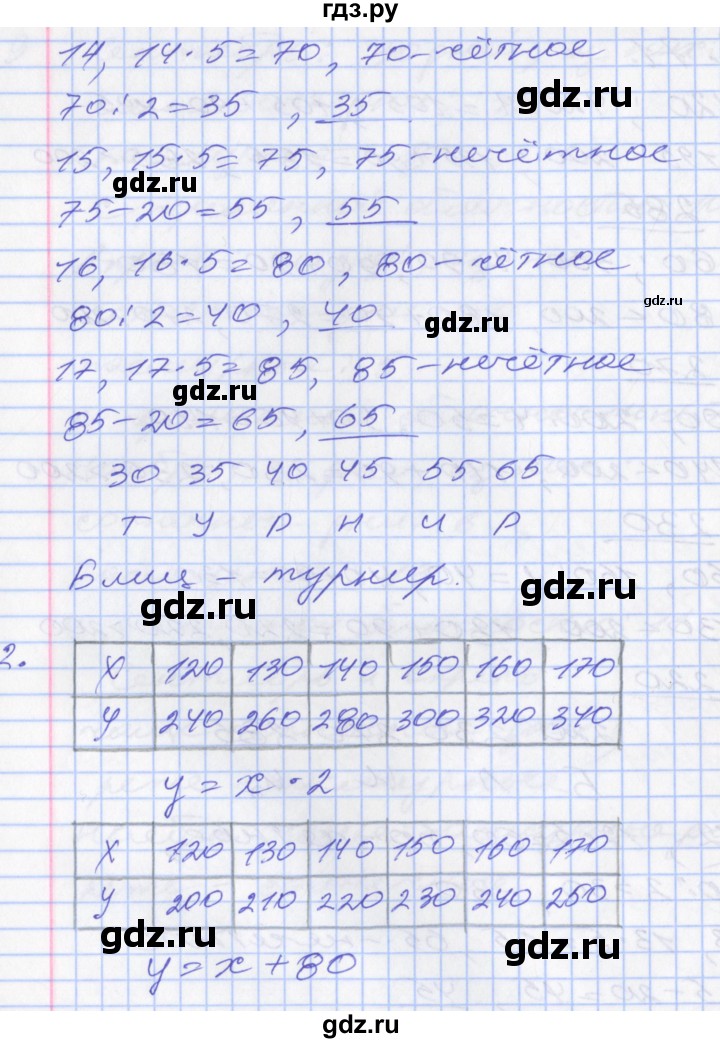 гдз.ру
14, 14·5=70, 70-чётное
70:2=35, 35
gdz.ru
15, 15·5=75, 75-нечётное
gdz.ru
75-20=55, 55
16, 16·5=80, 80-чётное
gdz.ru
80:2=40, 40
gdz.ru
17, 17·5=85, 85-нечётное
gdz.ru
85-20=65, 65
30 35 40 45 55 65
Т У Р Н И Р
Блиц-турнир.
gdz.ru gdz.ru
2.
X 120 130 140 150 160 170
У 240 260 280 300 320 340
y=x·2
X 120 130 140 150 160 170
У 200 210 220 230 240 250
gdz.ru gdz.ru
y=x+80
gdz.ru